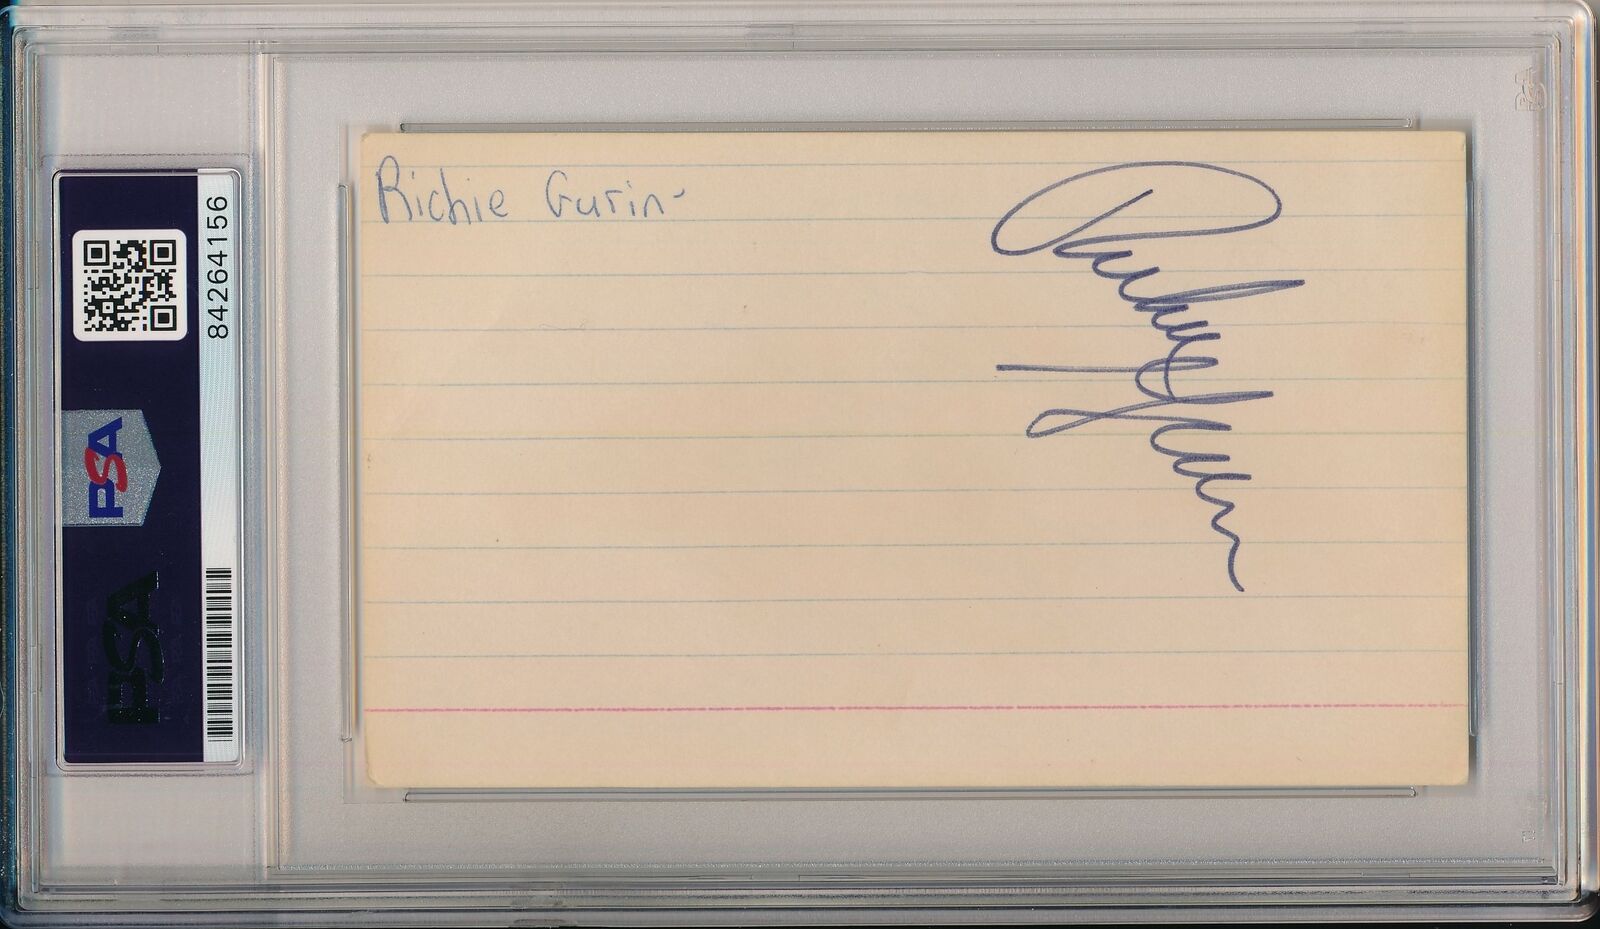 Richie Gurin-
Richie Guerin
84264156
PSA
PSA